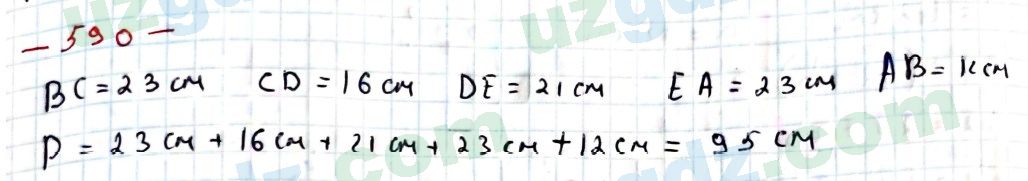 uzgdz.com
- 590 -
BC = 23 см CD = 16 см DE = 21 см EA = 23 см AB = 12 см
P = 23 см + 16 см + 21 см + 23 см + 12 см = 95 см